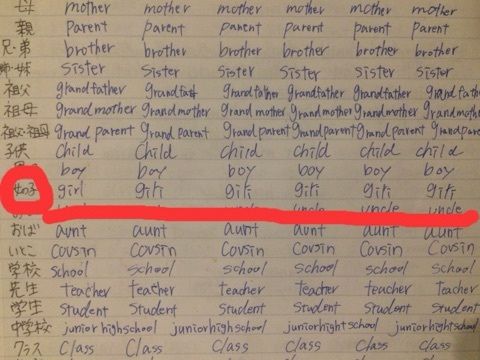 母 mother mother mother mother mother mother
親 parent parent parent parent parent parent
兄・弟 brother brother brother brother brother brother
姉・妹 sister sister sister sister sister sister
祖父 grandfather grandfath grandfather grandfather grandfather grandfath
祖母 grandmother grandmother grandmother grandmother grandmother grandmother
祖父・祖母 grand parent grand parent grand parent grand parent grand parent grand pare
子供 child child child child child child
boy boy boy boy boy boy
女の子 girl giri giri giri giri giri
uncle uncle uncle
おば aunt aunt aunt aunt aunt aunt
いとこ covsin covsin covsin covsin covsin covsin
学校 school school school school school school
先生 teacher teacher teacher teacher teacher teacher
学生 student student student student student student
中学校 junior high school junior high school junior high school junior high school
クラス class class class class class class